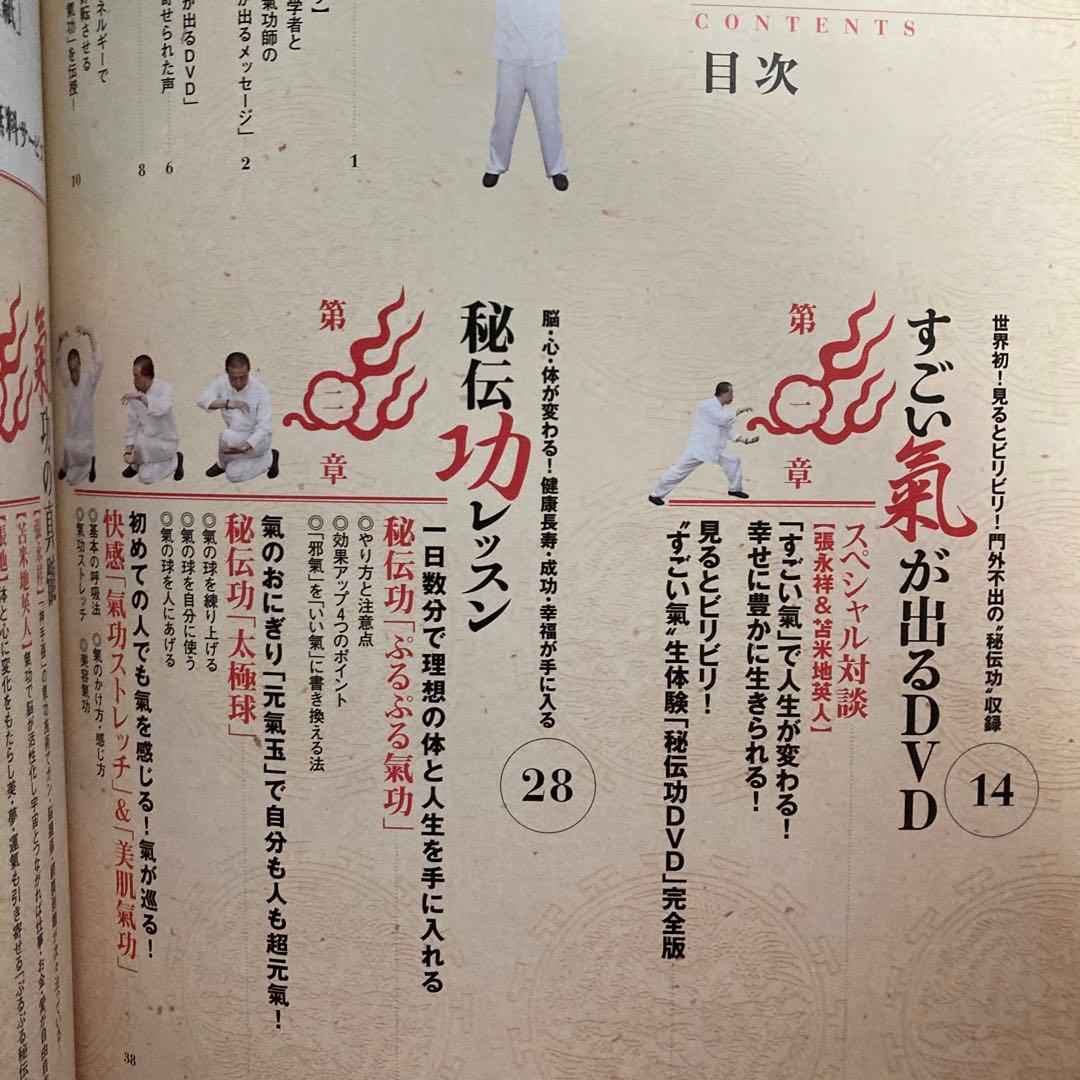 CONTENTS
目次
学者と
氣功師の
が出るメッセージ」
2
1
が出るDVD」
寄せられた声
6
8
ネルギーで
転させる
功」を伝授！
10
世界初！見るとビリビリ！門外不出の“秘伝功”収録
すごい氣が出るDVD
14
第一章
スペシャル対談
【張永祥＆苫米地英人】
「すごい氣」で人生が変わる！
幸せに豊かに生きられる！
見るとビリビリ！
“すごい氣”生体験「秘伝功DVD」完全版
脳・心・体が変わる！健康長寿・成功・幸福が手に入る
28
秘伝功レッスン
第二章
一日数分で理想の体と人生を手に入れる
秘伝功「ぷるぷる氣功」
◎やり方と注意点
◎効果アップ4つのポイント
◎「邪氣」を「いい氣」に書き換える法
氣のおにぎり「元氣玉」で自分も人も超元氣！
秘伝功「太極球」
◎氣の球を練り上げる
◎氣の球を自分に使う
◎氣の球を人にあげる
初めての人でも氣を感じる！氣が巡る！
快感「氣功ストレッチ」＆「美肌氣功」
◎基本の呼吸法　◎氣のかけ方・感じ方
◎氣功ストレッチ　◎美容氣功
38
氣功の真髄
【張永祥】
【苫米地英人】氣功で脳が活性化し宇宙とつながれば仕事・お金・愛が自由自
体と心に変化をもたらし美・夢・運氣も引き寄せる「ぷるぷる秘伝